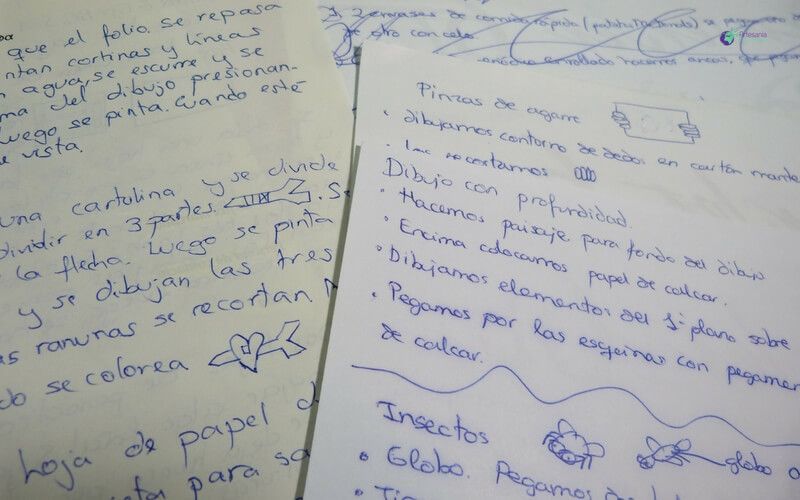 que el folio. se repasa
ntan cortinas y líneas
agua, se escurre y se
ma del dibujo presionan-
uego se pinta. Cuando esté
vista.
una cartulina y se divide
dividir en 3 partes. . S
la flecha. Luego se pinta
y se dibujan las tres
as ranuras se recortan
do se colorea
hoja de papel d
para sa
2 envases de comida rápida
otro con celo
Artesanía
Pinzas de agarre
• dibujamos contorno de dedos en cartón
• recortamos
Dibujo con profundidad.
• Hacemos paisaje para fondo del dibujo
• Encima colocamos papel de calcar.
• Dibujamos elementos del 1º plano sobre
• Pegamos por las esquinas con pegamen
de calcar.
Insectos
• Globo. Pegamos
globo